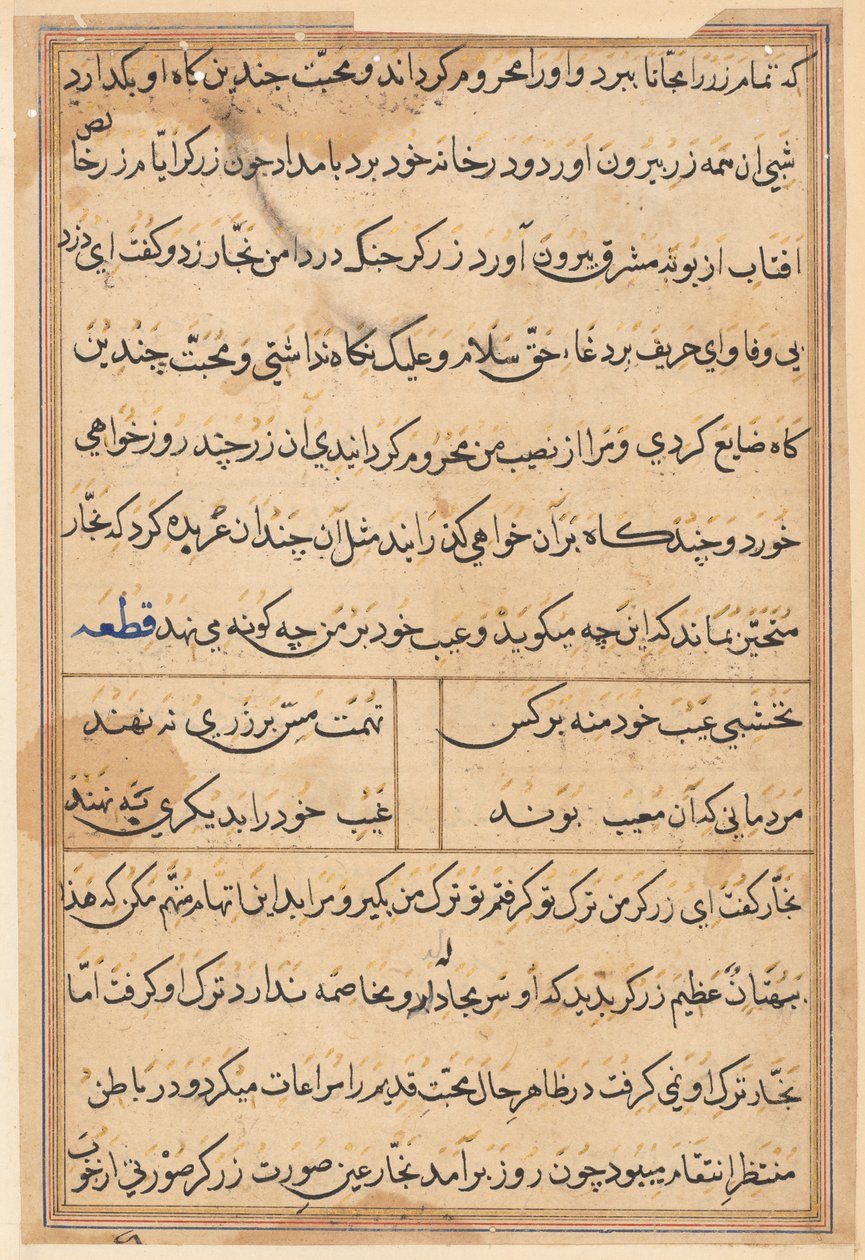 که تمام زر را مجّانا ببرد و او را محروم کرداند و محبّت جندین کاه او بکدارد
شبی ان همه زر بیرون اورد و در خانه خود برد بامداد جون زرکر ایّام زر خالص
افتاب از بوته مشرق بیرون آورد زرکر جنک در دامن نجّار زد و کفت ای دزد
بی وفا و ای حریف بر دغاء حقّ سلام و علیک نکاه نداشتی و محبتّ چندین
کاه ضایع کردی و مرا از نصیب من محروم کردانیدی ان زر چند روز خواهی
خورد و چند کاه بر آن خواهی کذرانید مثل آن چندان عربده کرد که نجّار
متحیّر بماند که این چه میکوید و عیب خود بر من چه کونه می نهد قطعه
نخشبی عیب خود منه بر کس تهمت مسّ بر زری نه نهند
مردمانی که آن معیب بوند عیب خود را بدیکری نه نهند
نجّار کفت ای زرکر من ترک تو کرفتم تو ترک من بکیر و مرا بداین اتهام متهّم مکن که هذا
بهتانٌ عظیم زرکر بدید که او سر مجادله و مخاصمه ندارد ترک او کرفت امّا
نجّار ترک او نمی کرفت در ظاهر حال محبّت قدیم را مراعات میکرد و در باطن
منتظر انتقام میبود چون روز برآمد نجّار عین صورت زرکر صورتی از خوب